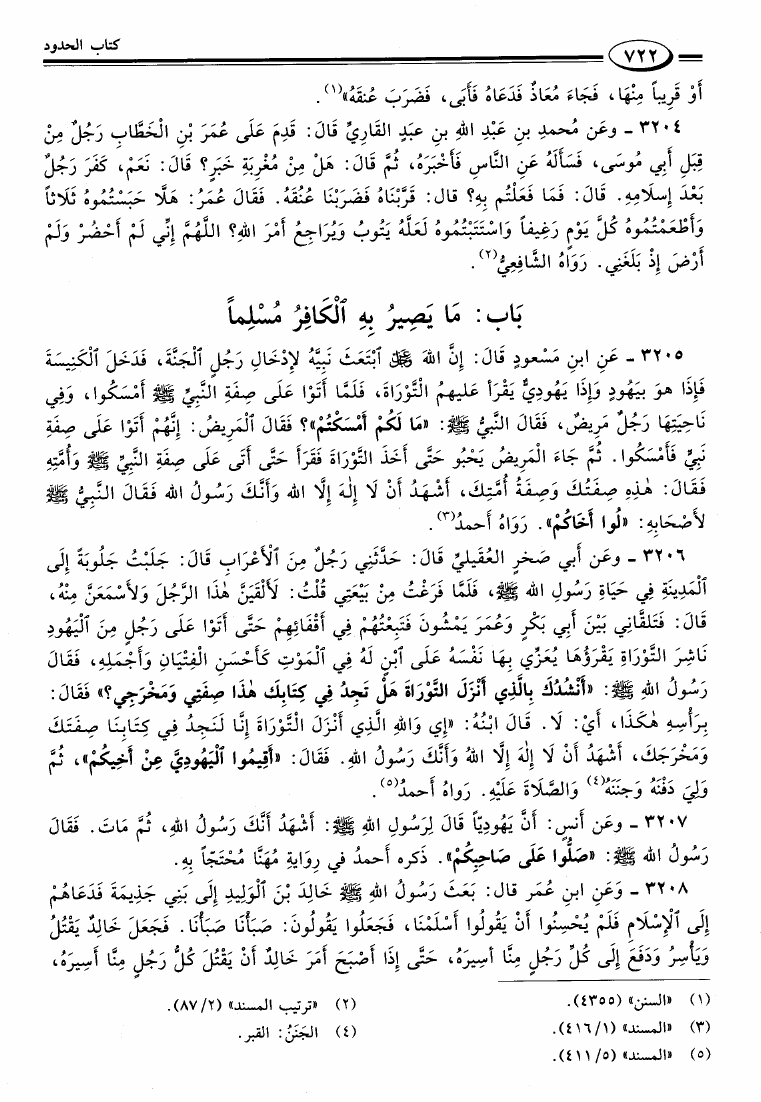 كتاب الحدود
٧٢٢
أَوْ قَرِيباً مِنْهَا، فَجَاءَ مُعَاذٌ فَدَعَاهُ فَأَبَى، فَضَرَبَ عُنقَهُ»(١).
٣٢٠٤ ـ وعَن مُحمدِ بنِ عَبْدِ اللهِ بنِ عَبدٍ القَارِيِّ قَالَ: قَدِمَ عَلَى عُمَرَ بْنِ الْخَطَّابِ رَجُلٌ مِنْ
قِبَلِ أَبِي مُوسَى، فَسَأَلَهُ عَنِ النَّاسِ فَأَخْبَرَهُ، ثُمَّ قَالَ: هَلْ مِنْ مُغْرِبَةِ خَبَرٍ؟ قَالَ: نَعَمْ، كَفَرَ رَجُلٌ
بَعْدَ إِسلَامِهِ. قَالَ: فَمَا فَعَلْتُم بِهِ؟ قال: قَرَّبْنَاهُ فَضَرَبْنَا عُنُقَهُ. فَقَالَ عُمَرُ: هَلَّا حَبَسْتُمُوهُ ثَلَاثاً
وَأَطْعَمْتُمُوهُ كُلَّ يَوْمٍ رَغِيفاً وَاسْتَتَبْتُمُوهُ لَعَلَّهُ يَتُوبُ وَيُرَاجِعُ أَمْرَ اللهِ؟ اللَّهُمَّ إِنِّي لَمْ أَحْضُرْ وَلَمْ
أَرْضَ إِذْ بَلَغَنِي. رَوَاهُ الشَّافِعِيُّ(٢).
بَاب: مَا يَصِيرُ بِهِ ٱلْكَافِرُ مُسْلِماً
٣٢٠٥ ـ عَنِ ابنِ مَسْعودٍ قَالَ: إِنَّ اللهَ ﷻ ٱبْتَعَثَ نَبِيَّهُ لإِدْخَالِ رَجُلٍ ٱلْجَنَّةَ، فَدَخَلَ ٱلْكَنِيسَةَ
فَإِذَا هوَ بيَهُودٍ وَإِذَا يَهُودِيٌّ يَقْرَأُ عَليهمُ ٱلتَّوْرَاةَ، فَلَمَّا أَتَوْا عَلَى صِفَةِ النَّبِيِّ ﷺ أَمْسَكُوا، وَفِي
نَاحِيَتِهَا رَجُلٌ مَرِيضٌ، فَقَالَ النَّبِيُّ ﷺ: «مَا لَكُمْ أَمْسَكْتُمْ»؟ فَقَالَ ٱلْمَرِيضُ: إِنَّهُمْ أَتَوْا عَلَى صِفَةِ
نَبِيٍّ فَأَمْسَكُوا. ثُمَّ جَاءَ الْمَرِيضُ يَحْبُو حَتَّى أَخَذَ التَّوْرَاةَ فَقَرَأَ حَتَّى أَتَى عَلَى صِفَةِ النَّبِيِّ ﷺ وَأُمَّتِهِ
فَقَالَ: هٰذِهِ صِفَتُكَ وَصِفَةُ أُمَّتِكَ، أَشْهَدُ أَنْ لَا إِلٰهَ إِلَّا الله وَأَنَّكَ رَسُولُ الله فَقَالَ النَّبِيُّ ﷺ
لأَصْحَابِهِ: «لُوا أَخَاكُمْ». رَوَاهُ أَحمدُ(٣).
٣٢٠٦ ـ وعَن أَبي صَخرٍ العُقَيليِّ قَالَ: حَدَّثَنِي رَجُلٌ مِنَ ٱلْأَعْرَابِ قَالَ: جَلَبْتُ جَلُوبَةً إِلَى
ٱلْمَدِينَةِ فِي حَيَاةِ رَسُولِ اللهِ ﷺ، فَلَمَّا فَرَغْتُ مِنْ بَيْعَتِي قُلْتُ: لَأَلْقَيَنَّ هٰذَا الرَّجُلَ وَلأَسْمَعَنَّ مِنْهُ،
قَالَ: فَتَلقَّانِي بَيْنَ أَبي بَكْرٍ وَعُمَرَ يَمْشُونَ فَتَبِعْتُهُمْ فِي أَقْفَائِهِمْ حَتَّى أَتَوْا عَلَى رَجُلٍ مِنَ ٱلْيَهُودِ
نَاشِرَ التَّوْرَاةِ يَقْرَؤُهَا يُعَزِّي بِهَا نَفْسَهُ عَلَى ٱبْنٍ لَهُ فِي ٱلْمَوْتِ كَأَحْسَنِ الْفِتْيَانِ وَأَجْمَلِهِ، فَقَالَ
رَسُولُ اللهِ ﷺ: «أَنْشُدُكَ بِالَّذِي أَنْزَلَ التَّوْرَاةَ هَلْ تَجِدُ فِي كِتَابِكَ هٰذَا صِفَتِي وَمَخْرَجِي؟» فَقَالَ:
بِرَأْسِهِ هٰكَذَا، أَيْ: لَا. قَالَ ابْنُهُ: «إِي وَاللهِ الَّذِي أَنْزَلَ التَّوْرَاةَ إِنَّا لَنَجِدُ فِي كِتَابِنَا صِفَتَكَ
وَمَخْرَجَكَ، أَشْهَدُ أَنْ لَا إِلٰهَ إِلَّا اللهُ وَأَنَّكَ رَسُولُ اللهِ. فَقَالَ: «أَقِيمُوا ٱلْيَهُودِيَّ عَنْ أَخِيكُمْ»، ثُمَّ
وَلِيَ دَفْنَهُ وَجَنَنَهُ(٤) وَالصَّلَاةَ عَلَيْهِ. رَواهُ أَحمدُ(٥).
٣٢٠٧ ـ وعَن أَنسٍ: أَنَّ يَهُودِيّاً قَالَ لِرَسُولِ اللهِ ﷺ: أَشْهَدُ أَنَّكَ رَسُولُ اللهِ، ثُمَّ مَاتَ. فَقَالَ
رَسُولُ الله ﷺ: «صَلُّوا عَلَى صَاحِبِكُمْ». ذكره أَحمدُ في رِوَايةِ مُهَنَّا مُحْتَجّاً بِهِ.
٣٢٠٨ ـ وَعَنِ ابنِ عُمَر قال: بَعَثَ رَسُولُ اللهِ ﷺ خَالِدَ بْنَ ٱلْوَلِيدِ إِلَى بَنِي جَذِيمَةَ فَدَعَاهُمْ
إِلَى ٱلْإِسْلَامِ فَلَمْ يُحْسِنُوا أَنْ يَقُولُوا أَسْلَمْنَا، فَجَعَلُوا يَقُولُونَ: صَبَأْنَا صَبَأْنَا. فَجَعَلَ خَالِدٌ يَقْتُلُ
وَيَأْسِرُ وَدَفَعَ إِلَى كُلِّ رَجُلٍ مِنَّا أَسِيرَهُ، حَتَّى إِذَا أَصْبَحَ أَمَرَ خَالِدٌ أَنْ يَقْتُلَ كُلُّ رَجُلٍ مِنَّا أَسِيرَهُ،
(١) «السنن» (٤٣٥٥). (٢) «ترتيب المسند» (٨٧/٢).
(٣) «المسند» (٤١٦/١). (٤) الجَنَنُ: القبر.
(٥) «المسند» (٤١١/٥).